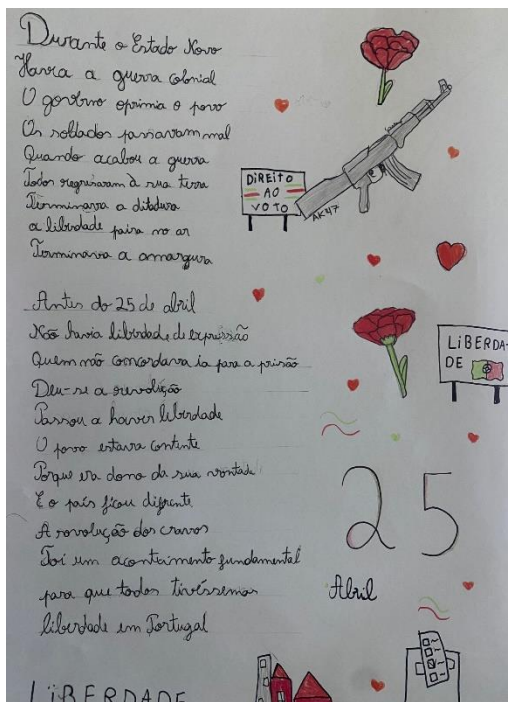 Durante o Estado Novo
Havia a guerra colonial
O governo oprimia o povo
Os soldados passavam mal
Quando acabou a guerra
Todos regressaram à sua terra
Terminava a ditadura
a liberdade paira no ar
Terminava a amargura
DiREiTO
AO
VOTO
AK47
Antes do 25 de abril
Não havia liberdade de expressão
Quem não concordava ia para a prisão
Deu-se a revolução
Passou a haver liberdade
O povo estava contente
Porque era dono da sua vontade
E o país ficou diferente
A revolução dos cravos
Foi um acontecimento fundamental
para que todos tivéssemos
liberdade em Portugal
LiBERDA-
DE
25
Abril
LiBERDADE